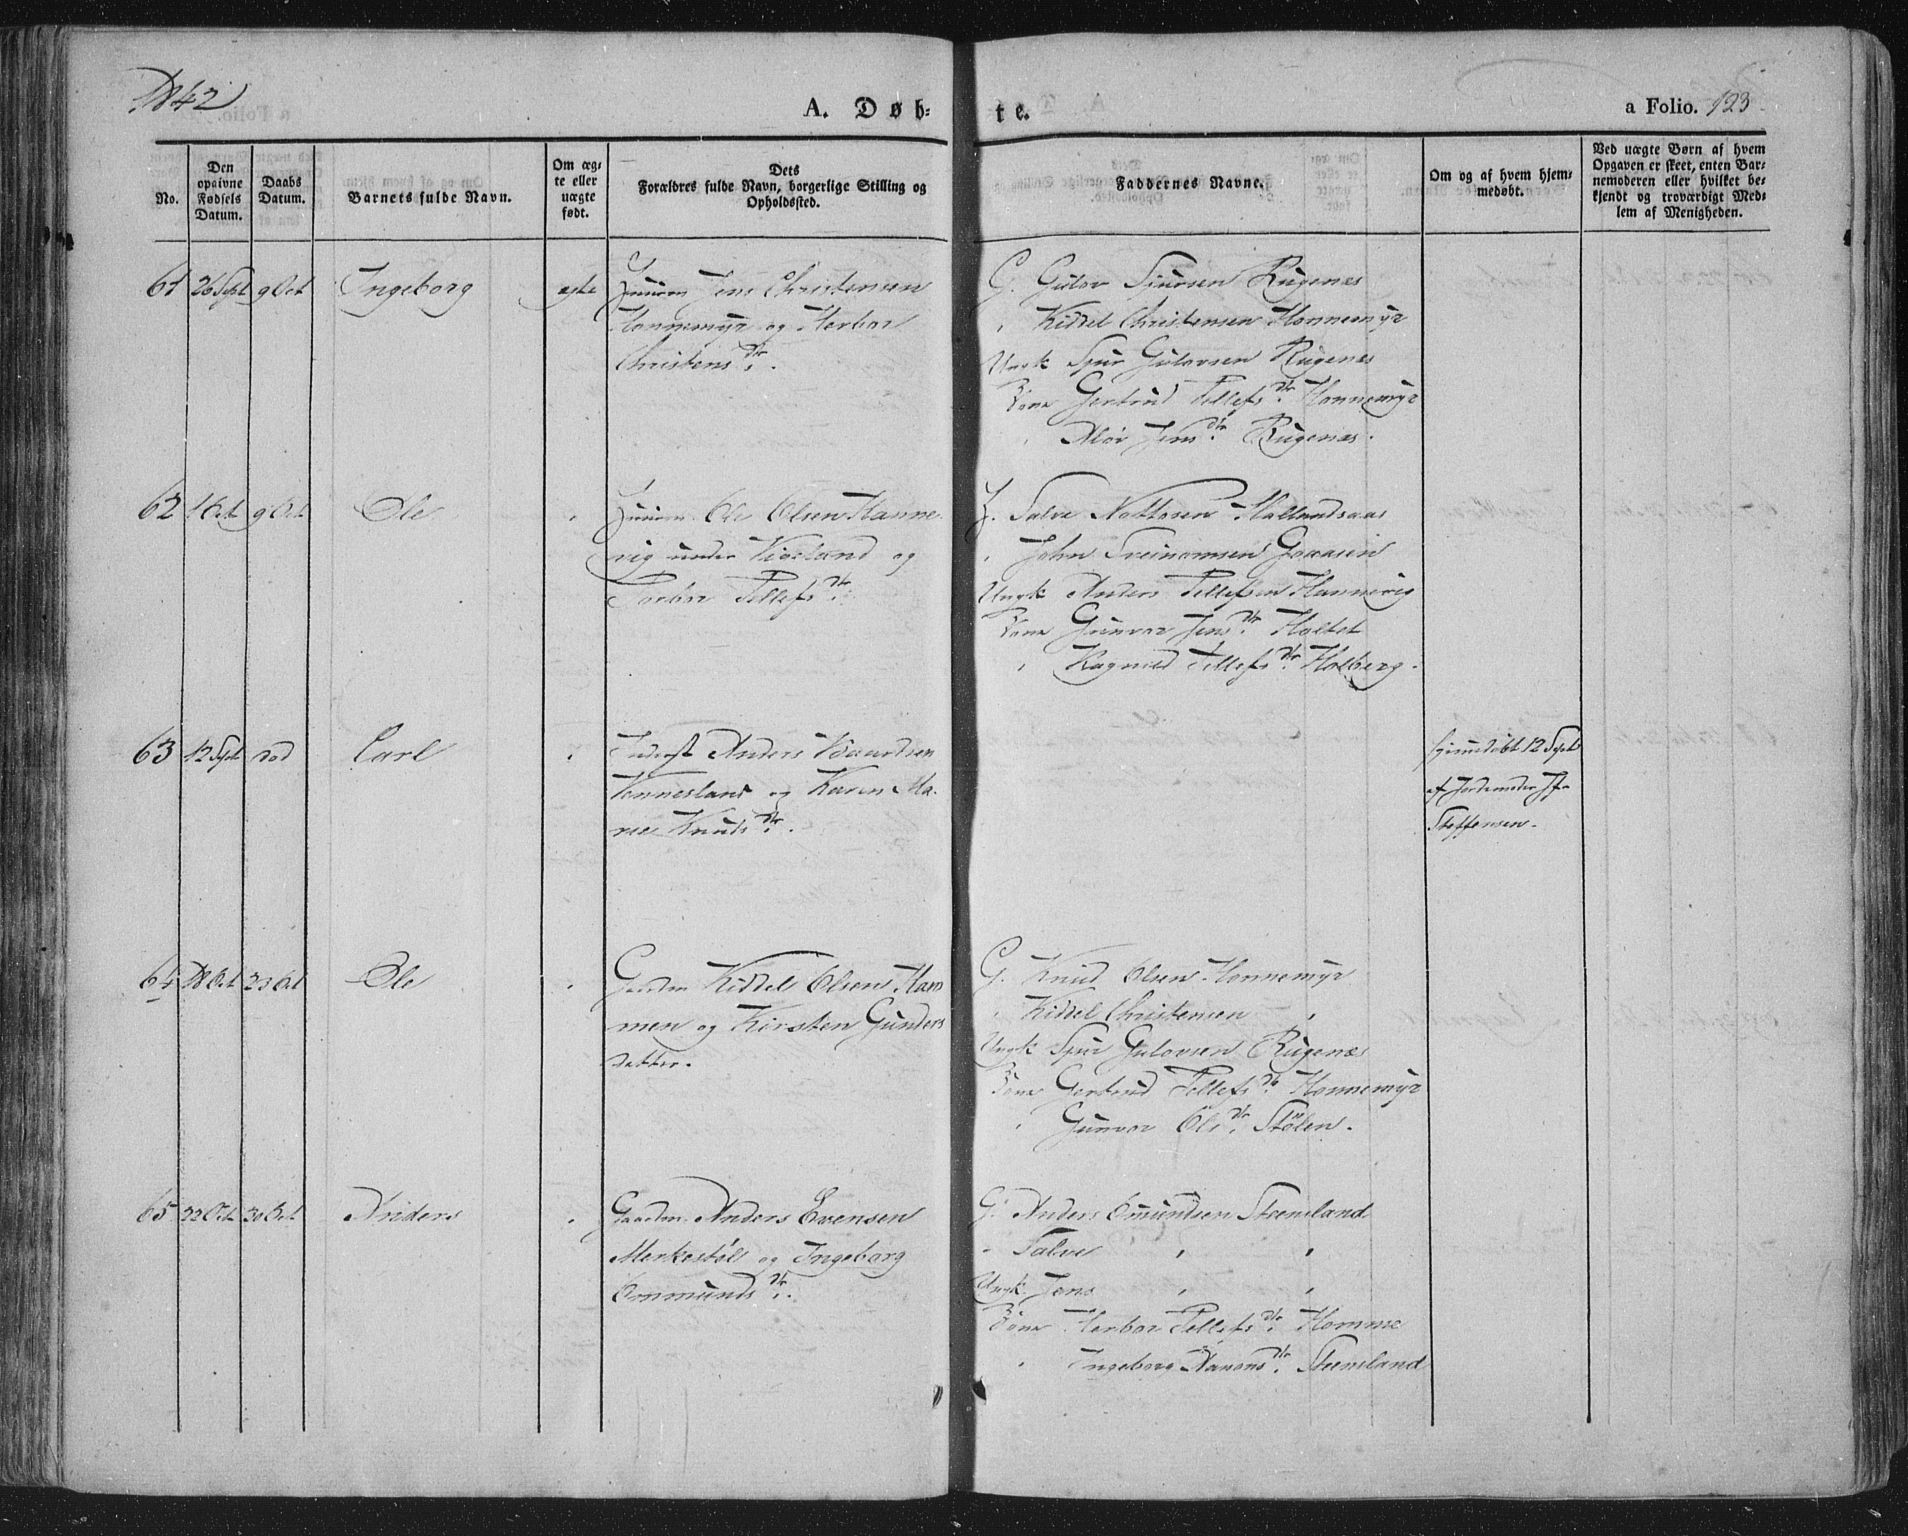 1842
A. Døb=
te.
a Folio. 123
No.
Den opgivne Fødsels Datum.
Daabs Datum.
Barnets fulde Navn.
Om ægte eller uægte født.
Dets
Forældres fulde Navn, borgerlige Stilling og
Opholdssted.
Faddernes Navne.
Om og af hvem hjem=
medøbt.
Ved uægte Børn af hvem
Opgaven er skeet, enten Bar=
nemoderen eller hvilket be=
kjendt og troværdigt Med=
lem af Menigheden.
61 26 Sept 9 Oct Ingeborg ægte
Jens Christensen
Honnemyr og Herbor
Christensdtr.
G. Gulov Siursen Rugenes
" Kiddel Christensen Honnemyr
Ungk Siur Gulovsen Rugenes
Kone Gertrud Tellefsdtr. Honnemyr
" Jensdtr. Rugenes.
62 1 Oct 9 Oct Ole "
Ole Olsen Hanne
vig under og
Torbor Tellefsdtr.
Salve Nottosen
John Gaaasen
Ungk Anders Tellefsen Hannevig
Kone Gunvor Jensdtr. Holtet
" Ragnild Tellefsdtr. Holberg.
63 12 Sept død Carl "
Inderst Anders
Vennesland og Karen Ma=
rie Knutsdtr.
hjemmedøbt 12 Sept
af Jordemoder
Steffensen.
64 18 Oct 23 Oct Ole "
Gaardm Kiddel Olsen Ham
men og Kirsten Gunders
datter.
G. Knud Olsen Honnemyr
" Kiddel Christensen "
Ungk Siur Gulovsen Rugenæs
Kone Gertrud Tellefsdtr. Honnemyr
" Gunvor Olsdtr. Stølen.
65 22 Oct 30 Oct Anders "
Gaardm Anders Evensen
Merkestøl og Ingeborg
Ommundsdtr.
G. Anders Omundsen Steensland
" Salve " "
Ungk. Jens " "
Kone Herbor Tellefsdtr. Homme
" Ingeborg Nanonsdtr. Steensland